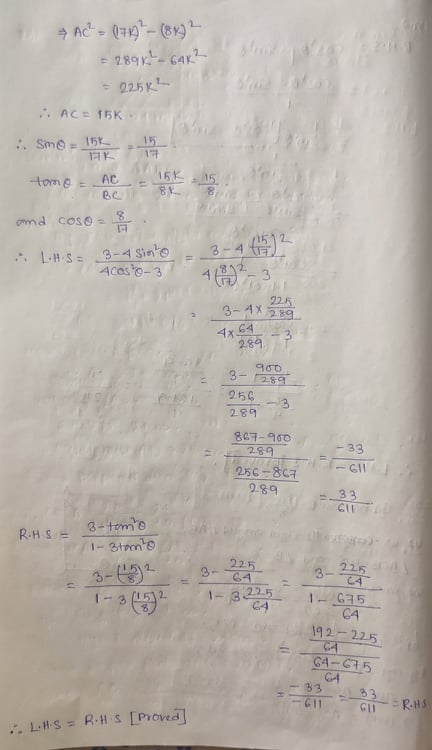 ⇒ AC² = (17K)² − (8K)²
= 289K² − 64K²
= 225K²
∴ AC = 15K.
∴ Sinθ = 15K/17K = 15/17.
tanθ = AC/BC = 15K/8K = 15/8.
and cosθ = 8/17.
∴ L.H.S = (3 − 4 Sin²θ)/(4cos²θ − 3) = (3 − 4 (15/17)²)/(4(8/17)² − 3)
= (3 − 4 × 225/289)/(4 × 64/289 − 3)
= (3 − 900/289)/(256/289 − 3)
= ((867 − 900)/289)/((256 − 867)/289) = −33/−611
= 33/611
R.H.S = (3 − tan²θ)/(1 − 3tan²θ)
= (3 − (15/8)²)/(1 − 3 (15/8)²) = (3 − 225/64)/(1 − 3 225/64) = (3 − 225/64)/(1 − 675/64)
= ((192 − 225)/64)/((64 − 675)/64)
= −33/−611 = 33/611 = R.H.S
∴ L.H.S = R.H.S [Proved]